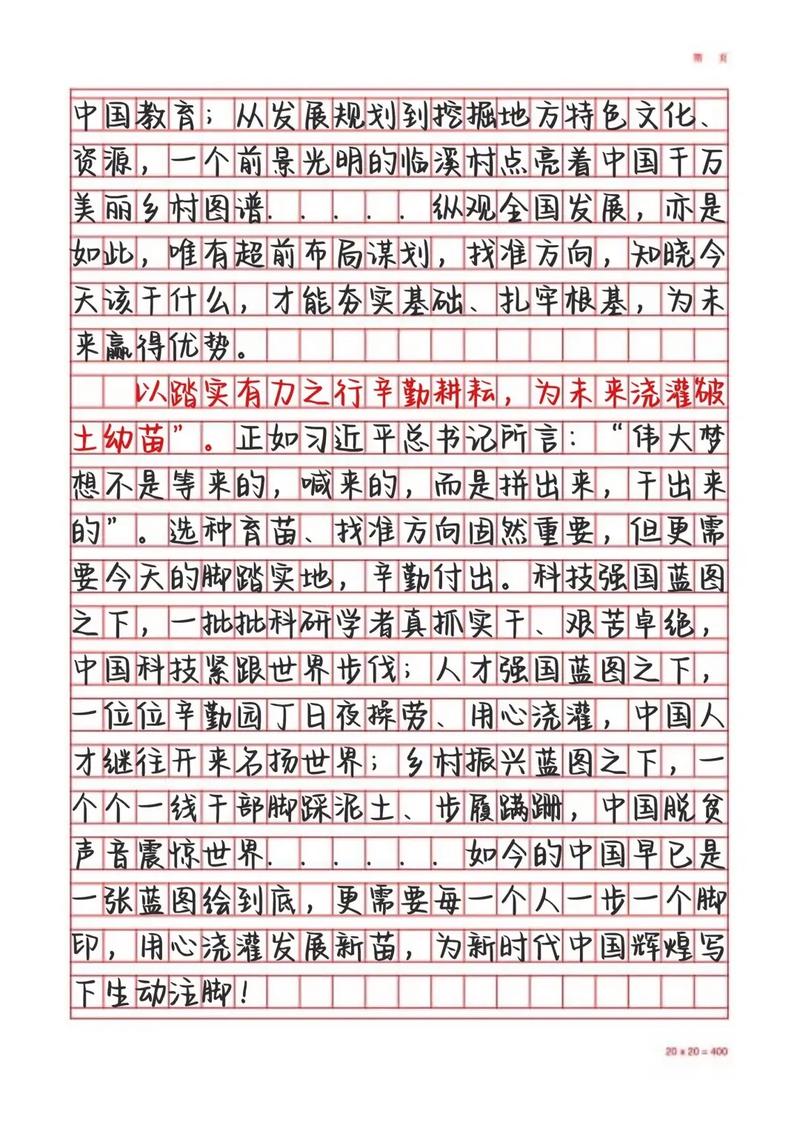 第 页
中国教育；从发展规划到挖掘地方特色文化、
资源，一个前景光明的临溪村点亮着中国千万
美丽乡村图谱．．．．．纵观全国发展，亦是
如此，唯有超前布局谋划，找准方向，知晓今
天该干什么，才能夯实基础、扎牢根基，为未
来赢得优势。
以踏实有力之行辛勤耕耘，为未来浇灌“破
土幼苗”。正如习近平总书记所言：“伟大梦
想不是等来的，喊来的，而是拼出来，干出来
的”。选种育苗、找准方向固然重要，但更需
要今天的脚踏实地，辛勤付出。科技强国蓝图
之下，一批批科研学者真抓实干、艰苦卓绝，
中国科技紧跟世界步伐；人才强国蓝图之下，
一位位辛勤园丁日夜操劳、用心浇灌，中国人
才继往开来名扬世界；乡村振兴蓝图之下，一
个个一线干部脚踩泥土、步履蹒跚，中国脱贫
声音震惊世界．．．．．．如今的中国早已是
一张蓝图绘到底，更需要每一个人一步一个脚
印，用心浇灌发展新苗，为新时代中国辉煌写
下生动注脚！
20 x 20 = 400